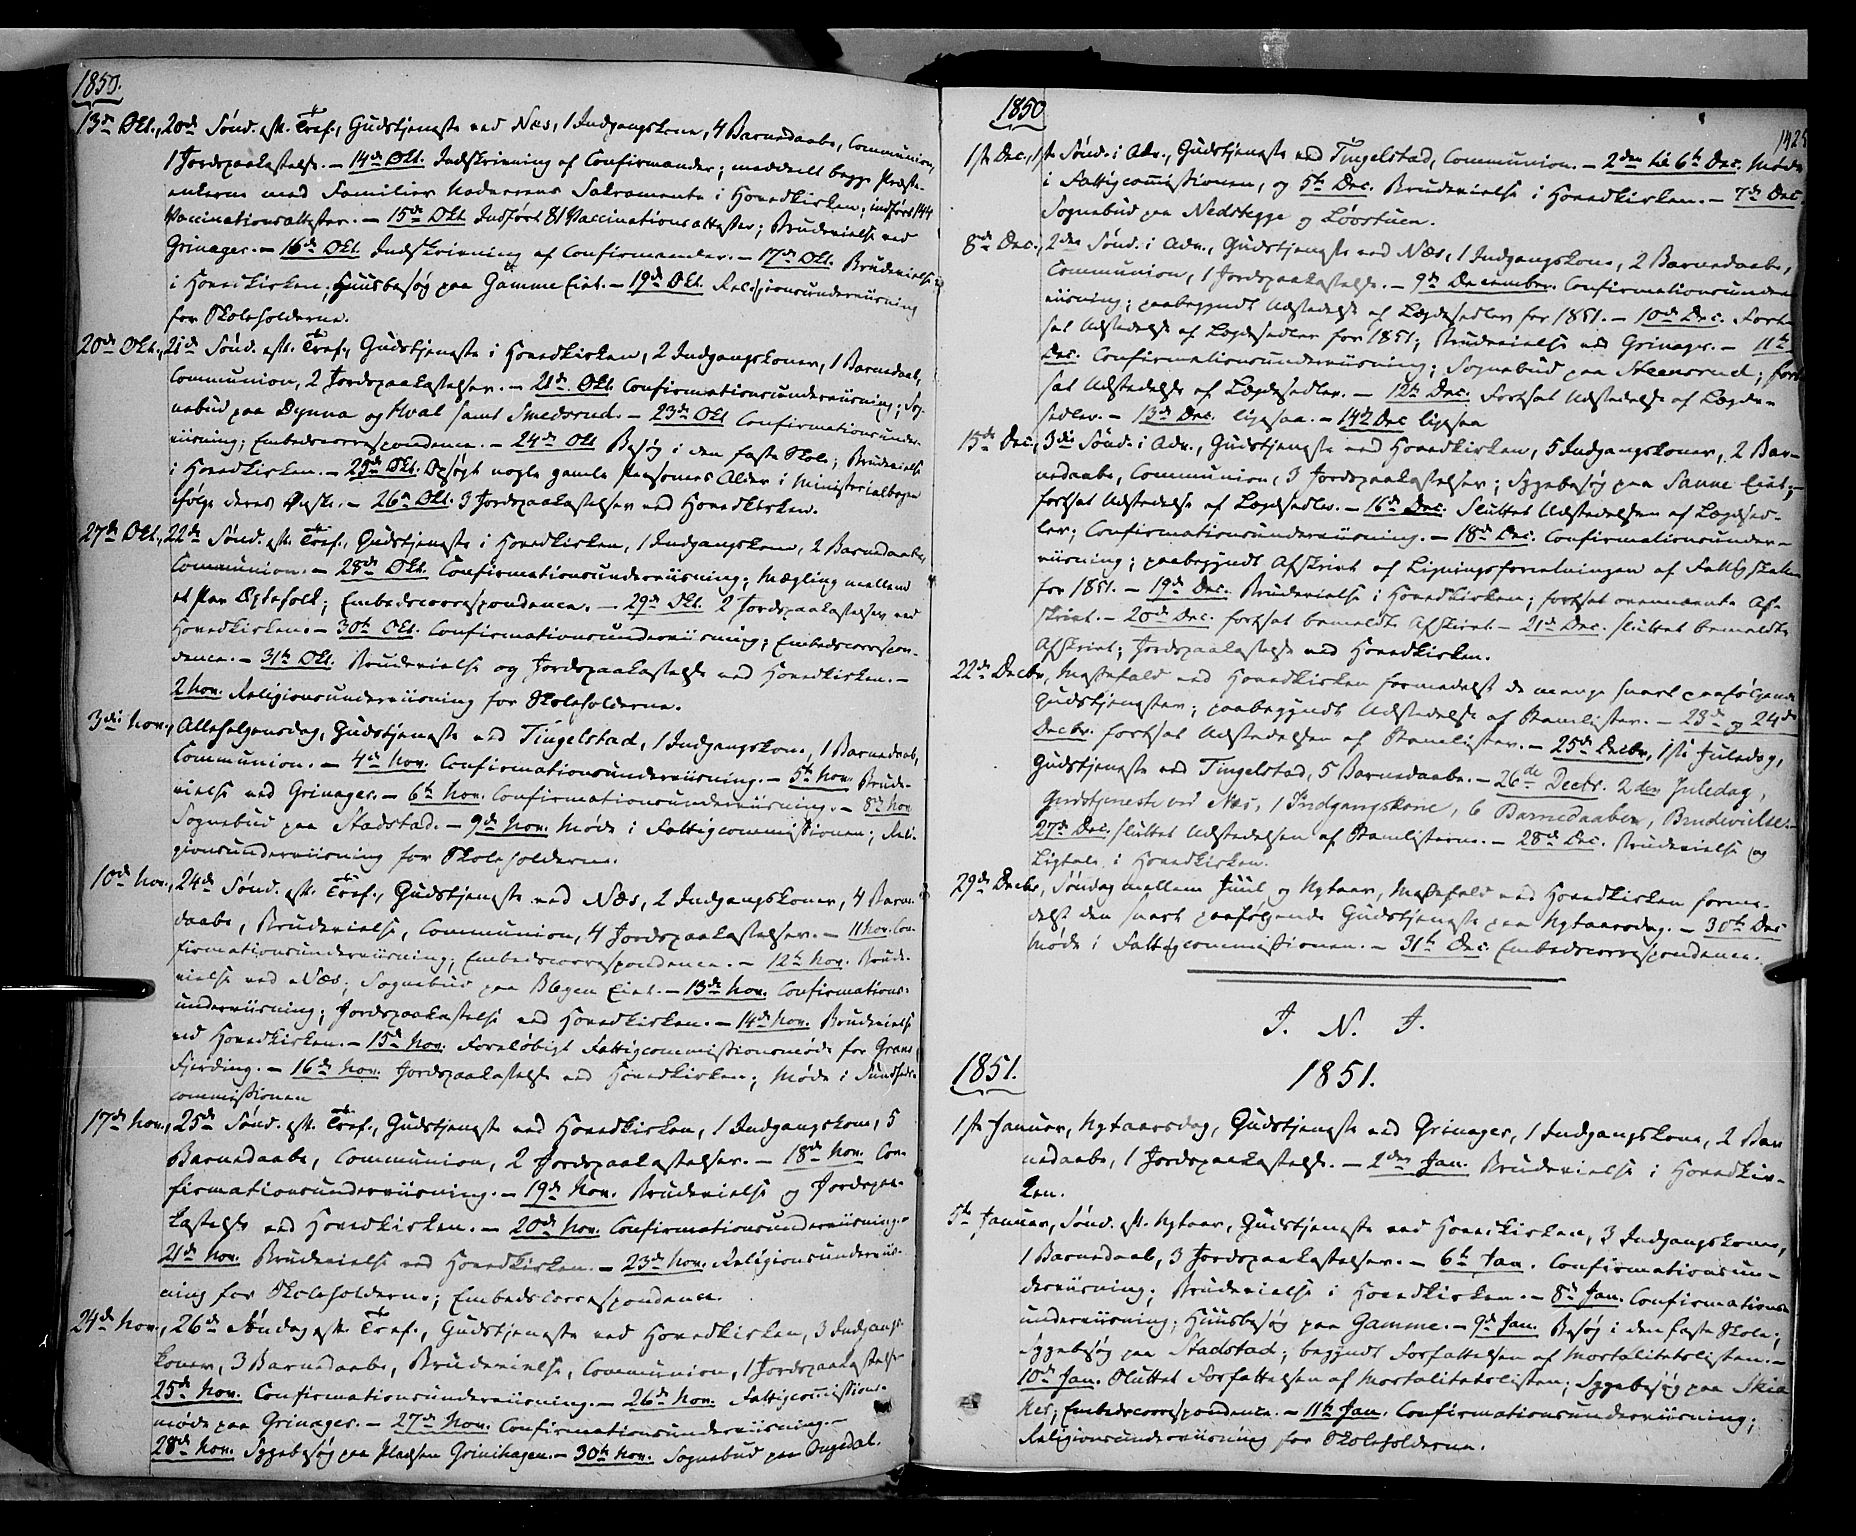 1850.
13de Okt., 20de Sønd. eft. Tref., Gudstjeneste ved Næs, 1 Indgangskone, 4 Barnedaabe, Communion,
1 Jordpaakastelse. — 14de Okt. Indskrivning af Confirmander; meddeelt begge Præste-
enkerne med Familier Nadverens Sakramente i Hovedkirken; indført 144
Vaccinationsattester. — 15de Okt. Indført 81 Vaccinationsattester; Brudevielse ved
Grinager. — 16de Okt. Indskrivning af Confirmander. — 17de Okt. Brudevielse
i Hovedkirken; Huusbesøg paa Gamme Eiet. — 19de Okt. Religionsunderviisning
for Skoleholderne.
20de Okt., 21de Sønd. eft. Tref., Gudstjeneste i Hovedkirken, 2 Indgangskoner, 1 Barnedaab,
Communion, 2 Jordpaakastelser. — 21de Okt. Confirmationsunderviisning; Sog-
nebud paa Dynna og Hval samt Smedsrud. — 23de Okt. Confirmationsunder-
viisning; Embedscorrespondence. — 24de Okt. Besøg i den faste Skole; Brudevielse
i Hovedkirken. — 25de Okt. Opsøgt nogle gamle Personers Alder i Ministerialbogen
ifølge deres Ønske. — 26de Okt. 3 Jordpaakastelser ved Hovedkirken.
27de Okt., 22de Sønd. eft. Tref., Gudstjeneste i Hovedkirken, 1 Indgangskone, 2 Barnedaabe,
Communion. — 28de Okt. Confirmationsunderviisning; Mægling mellem
et Par Ægtefolk; Embedscorrespondence. — 29de Okt. 2 Jordpaakastelser ved
Hovedkirken. — 30te Okt. Confirmationsunderviisning; Embedscorrespon-
dence. — 31te Okt. Brudevielse og Jordpaakastelse ved Hovedkirken. —
2 Nov. Religionsunderviisning for Skoleholderne.
3die Nov., Allehelgensdag, Gudstjeneste ved Tingelstad, 1 Indgangskone, 1 Barnedaab,
Communion. — 4de Nov. Confirmationsunderviisning. — 5te Nov. Brude-
vielse ved Grinager. — 6te Nov. Confirmationsunderviisning. — 8de Nov.
Sognebud paa Stadstad. — 9de Nov. Møde i Fattigcommissionen; Reli-
gionsunderviisning for Skoleholderne.
10de Nov., 24de Sønd. eft. Tref., Gudstjeneste ved Næs, 2 Indgangskoner, 4 Barne-
daabe, Brudevielse, Communion, 4 Jordpaakastelser. — 11 Nov. Con-
firmationsunderviisning; Embedscorrespondence. — 12te Nov. Brude-
vielse ved Næs; Sognebud paa Blegen Eiet. — 13de Nov. Confirmations-
underviisning; Jordpaakastelse ved Hovedkirken. — 14de Nov. Brudevielse
ved Hovedkirken. — 15de Nov. Foreløbigt Fattigcommissionsmøde for Grans
Fjerding. — 16de Nov. Jordpaakastelse ved Hovedkirken; Møde i Sundheds-
commissionen
17de Nov., 25de Sønd. eft. Tref., Gudstjeneste ved Hovedkirken, 1 Indgangskone, 5
Barnedaabe, Communion, 2 Jordpaakastelser. — 18de Nov. Con-
firmationsunderviisning. — 19de Nov. Brudevielse og Jordpaa-
kastelse ved Hovedkirken. — 20de Nov. Confirmationsunderviisning. —
21de Nov. Brudevielse ved Hovedkirken. — 23de Nov. Religionsunderviis-
ning for Skoleholderne; Embedscorrespondence.
24de Nov., 26de Søndag eft. Tref., Gudstjeneste ved Hovedkirken, 3 Indgangs-
koner, 3 Barnedaabe, Brudevielse, Communion, 1 Jordpaakastelse
25de Nov. Confirmationsunderviisning. — 26de Nov. Fattigcommissions-
møde paa Grinager. — 27de Nov. Confirmationsunderviisning. —
28de Nov. Sygebesøg paa Pladsen Grinihagen. — 30te Nov. Sognebud paa
1850
1425
1ste Dec., 1ste Sønd. i Adv., Gudstjeneste ved Tingelstad, Communion. — 2den til 6te Dec. Møde
i Fattigcommissionen, og 5te Dec. Brudevielse i Hovedkirken. — 7de Dec.
Sognebud paa Nedstegge og Løvstuen.
8de Dec., 2den Sønd. i Adv., Gudstjeneste ved Næs, 1 Indgangskone, 2 Barnedaabe,
Communion, 1 Jordpaakastelse. — 9de December. Confirmationsunder-
viisning; paabegyndt Udstedelse af Lægdsedler for 1851. — 10de Dec. Fort-
sat Udstedelse af Lægdsedler for 1851; Brudevielse ved Grinager. — 11te
Dec. Confirmationsunderviisning; Sognebud paa Steensrud; fort-
sat Udstedelse af Lægdsedler. — 12te Dec. Fortsat Udstedelse af Lægds-
sedler. — 13de Dec. ligesaa. — 14de Dec. ligesaa
15de Dec., 3die Sønd. i Adv., Gudstjeneste ved Hovedkirken, 5 Indgangskoner, 2 Bar-
nedaabe, Communion, 3 Jordpaakastelser; Sygebesøg paa Sanne Eiet; —
fortsat Udstedelse af Lægdsedler. — 16de Dec. Sluttet Udstedelsen af Lægdsed-
ler; Confirmationsunderviisning. — 18de Dec. Confirmationsunder-
viisning; paabegyndt Afskrivt af Ligningsforretningen af Fattigskatten
for 1851. — 19de Dec. Brudevielse i Hovedkirken; fortsat ovennævnte Af-
skrivt. — 20de Dec. fortsat bemeldte Afskrivt. — 21de Dec. sluttet bemeldte
Afskrivt; Jordpaakastelse ved Hovedkirken.
22de Decbr., Messefald ved Hovedkirken formedelst de mange snart paafølgende
Gudstjenester; paabegyndt Udstedelse af Stamlister. — 23de og 24de
Decbr. fortsat Udstedelsen af Stamlister. — 25de Decbr., 1ste Juledag,
Gudstjeneste ved Tingelstad, 5 Barnedaabe. — 26de Decbr. 2den Juledag,
Gudstjeneste ved Næs, 1 Indgangskone, 6 Barnedaaber, Brudevielse. —
27de Dec. sluttet Udstedelsen af Stamlisterne. — 28de Dec. Brudevielse og
Ligtale i Hovedkirken.
29de Decbr., Søndag mellem Juul og Nytaar, Messefald ved Hovedkirken forme-
delst den snart paafølgende Gudstjeneste paa Nytaarsdag. — 30te Dec.
Møde i Fattigcommissionen. — 31te Dec. Embedscorrespondence.
I. N. J.
1851.
1851.
1ste Januar, Nytaarsdag, Gudstjeneste ved Grinager, 1 Indgangskone, 2 Bar-
nedaabe, 1 Jordpaakastelse. — 2den Jan. Brudevielse i Hovedkir-
ken.
5te Januar, Sønd. eft. Nytaar, Gudstjeneste ved Hovedkirken, 3 Indgangskoner,
1 Barnedaab, 3 Jordpaakastelser. — 6te Jan. Confirmationsun-
derviisning; Brudevielse i Hovedkirken. — 8de Jan. Confirmations-
underviisning; Huusbesøg paa Gamme. — 9de Jan. Besøg i den faste Skole;
Sygebesøg paa Stadstad; begyndt Forfattelsen af Mortalitetslisten. —
10de Jan. Sluttet Forfattelsen af Mortalitetslisten; Sygebesøg paa Skia-
ker; Embedscorrespondence. — 11te Jan. Confirmationsunderviisning;
Religionsunderviisning for Skoleholderne.